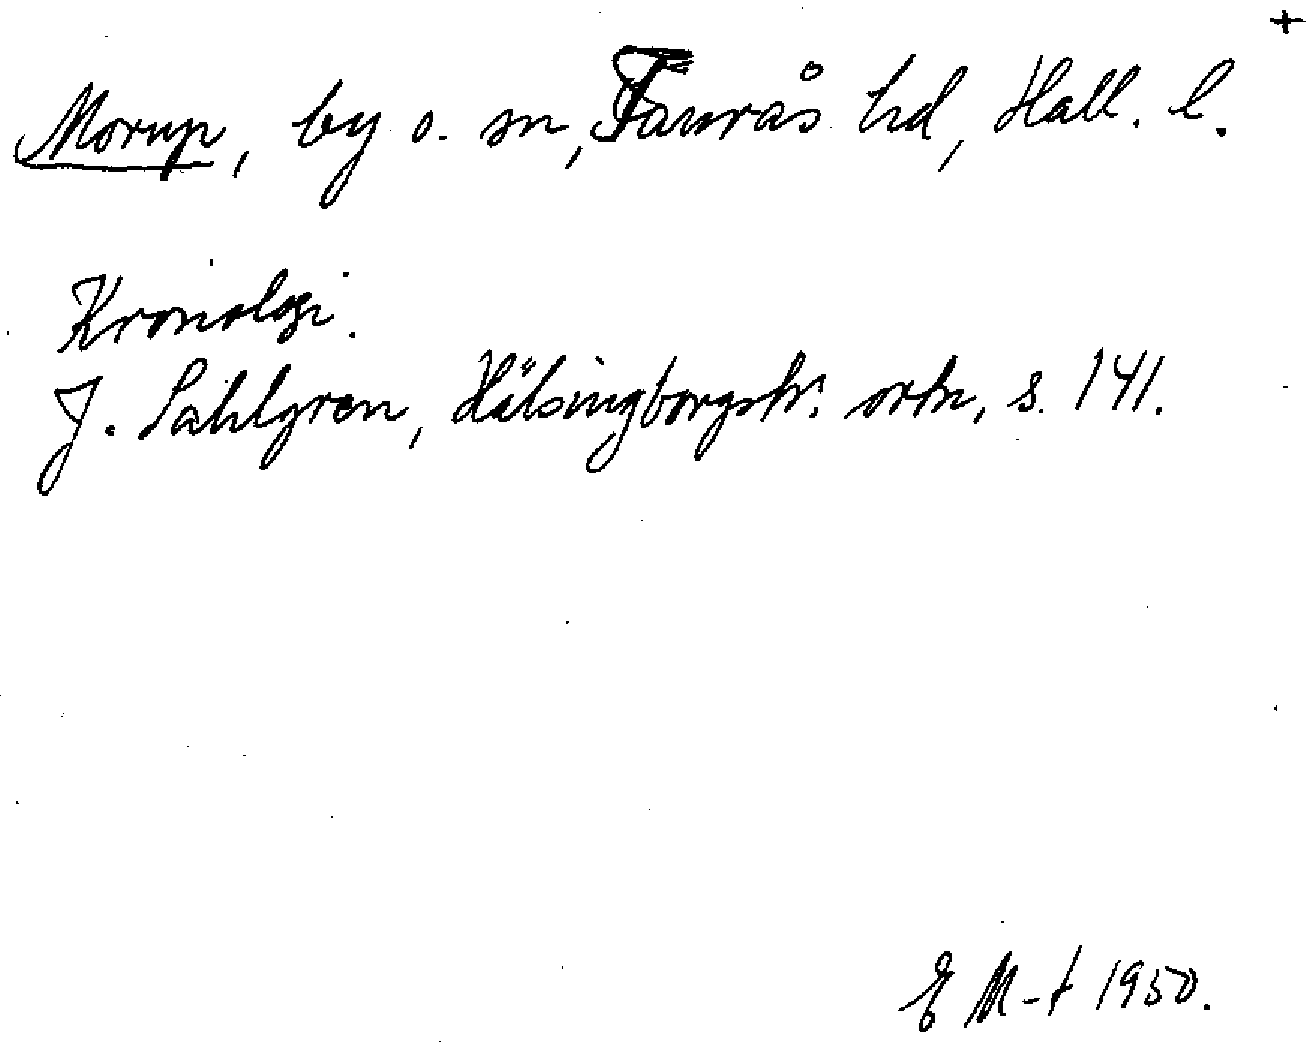 +
Morup, by o. sn, Faurås hd, Hall. l.
Kronologi.
J. Sahlgren, Hälsingborgstr. ortn, s. 141.
E M-t 1950.